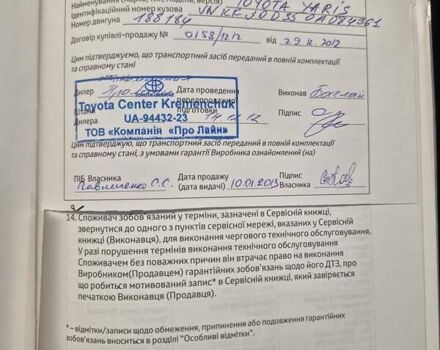 Найменування (марка, тип, модель, версія) TOYOTA YARIS
Ідентифікаційний номер кузова VNKEJ0D350A084361
Номер двигуна 188184
Договір купівлі-продажу № 0158/12/2 від 29.11.2012
Цим підтверджуємо, що транспортний засіб переданий в повній комплектації
та справному стані
Дилер Дата проведення Виконав
передпродажної
Штамп підготовки Підпис
Дилера 14.12.12
Toyota Center Kremenchuk
UA-94432-23
ТОВ «Компанія «Про Лайн»
Цим підтверджую, що транспортний засіб переданий в повній комплектації
та справному стані, з умовами гарантії Виробника ознайомлений (на)
ПІБ Власника Дата продажу Підпис
Павличенко С.С. (дата видачі) 10.01.2013 Власника
14. Споживач зобов'язаний у терміни, зазначені в Сервісній книжці,
звернутися до одного з пунктів сервісної мережі, вказаних у Сервісній
книжці (Виконавця), для виконання чергового технічного обслуговування.
У разі порушення термінів виконання технічного обслуговування
Споживачем без поважних причин він втрачає право на виконання
Виробником(Продавцем) гарантійних зобов'язань щодо його ДТЗ, про
що робиться мотивований запис* в Сервісній книжці, який завіряється
печаткою Виконавця (Продавця).
* – відмітки/записи щодо обмеження, припинення або подовження гарантійних
зобов'язань вноситься в розділі "Особливі відмітки".